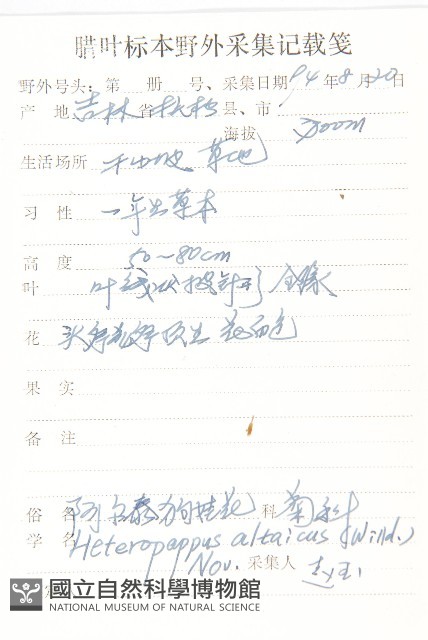 腊叶标本野外采集记载笺
野外号头：第 册 号、采集日期94年8月20日
产 地 吉林省 县、市
海拔 300m
生活场所 干山坡 草地
习 性 一年生草本
高 度 50~80cm
叶 叶线状披针形 全缘
花 头状花序顶生 花
果 实
备 注
俗 名 阿尔泰狗娃花 科 菊科
学 名 Heteropappus altaicus (Willd.)
Nov. 采集人
國立自然科學博物館
NATIONAL MUSEUM OF NATURAL SCIENCE